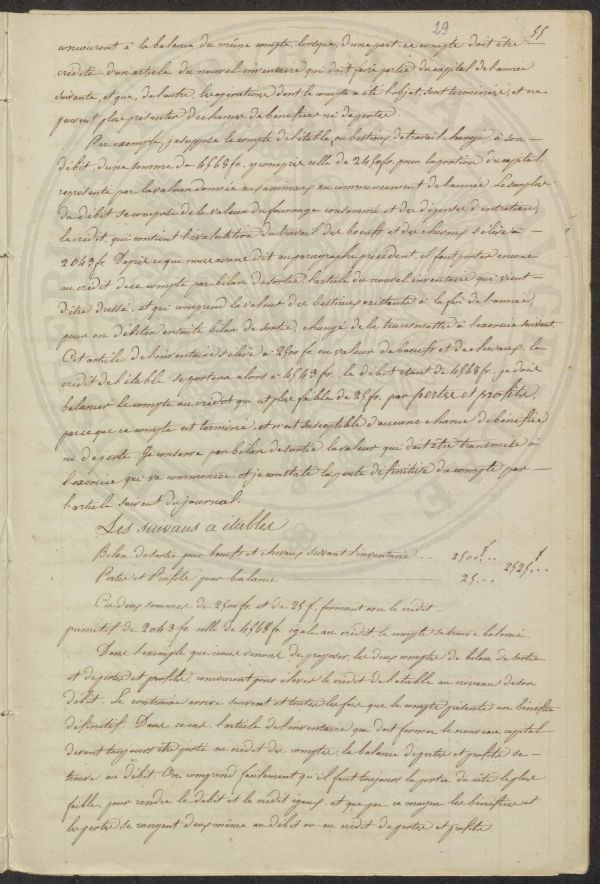 29 55
concourent à la balance du même compte, lorsque, d'une part, ce compte doit être
crédité d'un article du nouvel inventaire qui doit faire partie du capital de l'année
suivante, et que, de l'autre, les opérations dont le compte a été l'objet sont terminées, et ne
peuvent plus présenter de chances de bénéfices ni de pertes
Par exemple, je suppose le compte de l'étable, ou bestiaux de travail chargé à son
débit, d'une somme de 4568 fr, y compris celle de 2450 fr, pour la portion du capital
représenté par la valeur donnée aux animaux au commencement de l'année. Le surplus
du débit se compose de la valeur du fourrage consommé et des dépenses d'entretien,
le crédit, qui contient l'évalution du travail des boeufs et des chevaux s'élève à
2043 fr. D'après ce que nous avons dit au paragraphe précédent, il faut porter encore
au crédit de ce compte par bilan de sortie l'article du nouvel inventaire qui vient
d'être dressé, et qui comprend la valeur des bestiaux existants à la fin de l'année,
pour en débiter ensuite bilan de sortie, chargé de la transmettre à l'exercice suivant.
Cet article de l'inventaire s'élève à 2500 fr en valeur de boeufs et de chevaux. Le
crédit de l'étable se portera alors à 4543 fr. le débit étant de 4568 fr, je dois
balancer le compte au crédit qui est plus faible de 25 fr. par pertes et profits,
parce que ce compte est terminé, et n'est susceptible d'aucune chance de bénéfice
ni de perte. Je conserve par bilan de sortie la valeur qui doit être transmise à
l'exercice qui va commencer, et je constate la perte définitive du compte par
l'article suivant du journal
Les suivans à étables
Bilan de sortie pour boeufs et chevaux suivant l'inventaire .. 2500f ..
Pertes et Profits pour balance 25 ... 2525f ..
Ces deux sommes de 2500 fr et de 25 f. formant avec le crédit
primitif de 2043 fr. celle de 4568 fr égale au crédit le compte se trouve balancé.
Dans l'exemple que nous venons de proposer, les deux comptes de bilan de sortie
et de pertes et profits, concourent pour élever le crédit de l'étable au niveau de son
débit. Le contraire arrive souvent et toutes les fois que le compte présente un bénéfice
définitif. Dans ce cas l'article de l'inventaire qui doit former le nouveau capital
devant toujours être porté au crédit des comptes, la balance de pertes et profits se
trouve au débit. On comprend facilement qu'il faut toujours la porter du côté le plus
faible, pour rendre le débit et le crédit égaux, et que par ce moyen les bénéfices et
les pertes se rangent d'eux même au débit ou au crédit de pertes et profits.